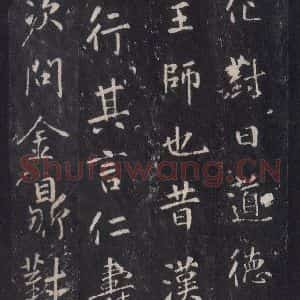 化對曰道德
王師也昔漢
行其言仁壽
次問金對
Shufawang.CN